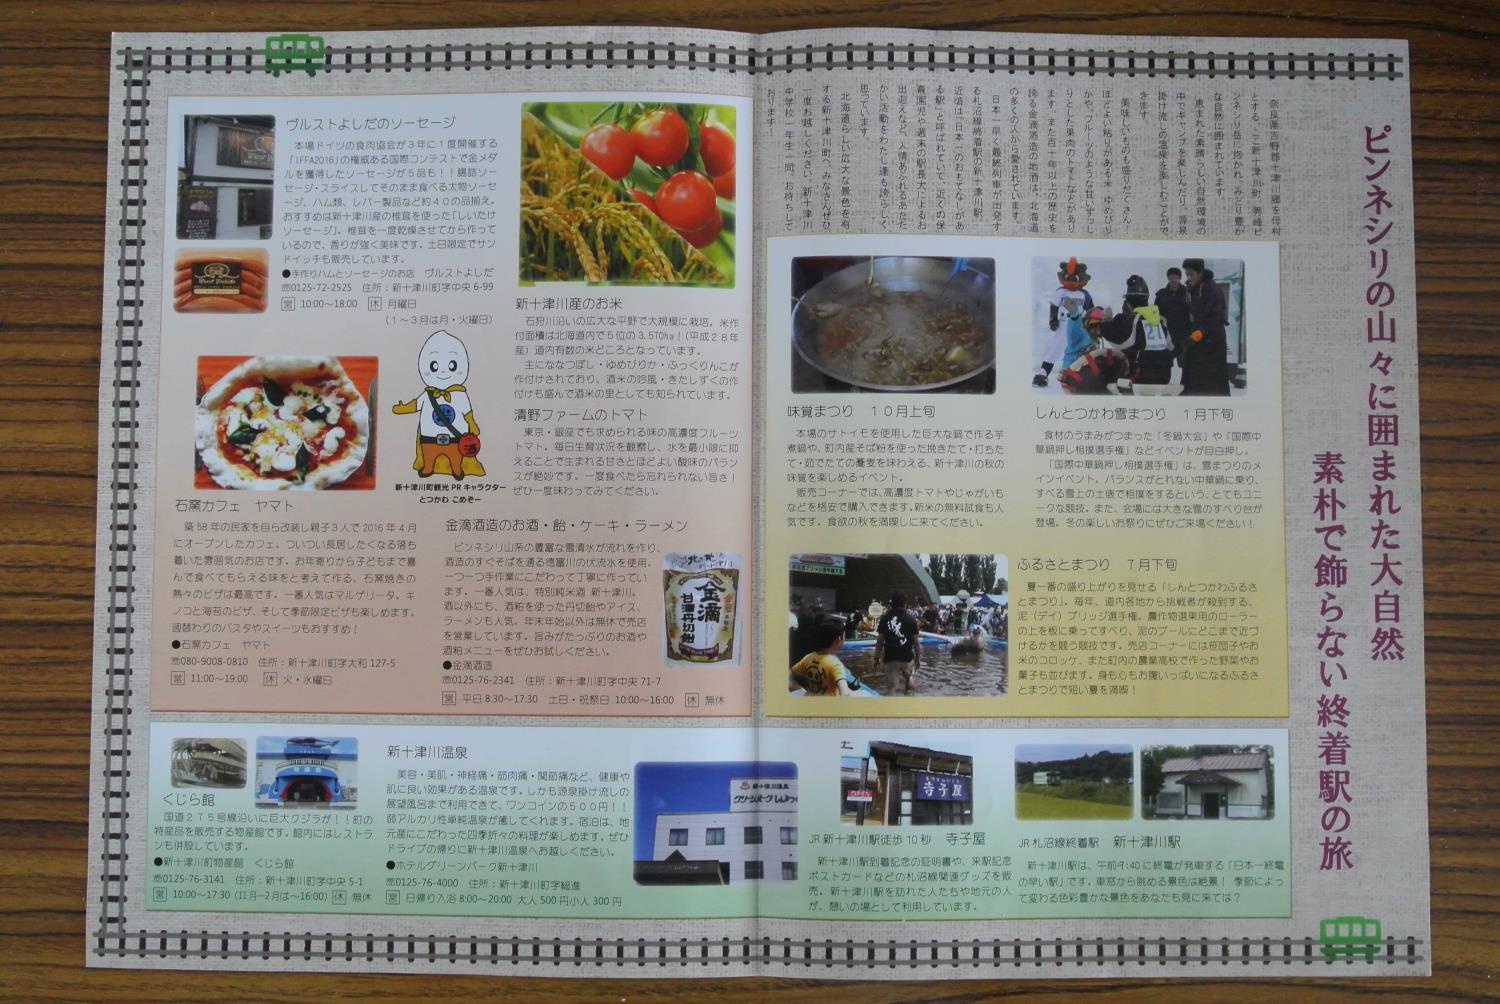 ピンネシリの山々に囲まれた大自然
素朴で飾らない終着駅の旅
奈良県吉野郡十津川郷を母村
とする、ここ新十津川町。秀峰ピ
ンネシリ岳に抱かれ、みどり豊か
な自然に囲まれています。
恵まれた素晴らしい自然環境の
中でキャンプを楽しんだり、源泉
掛け流しの温泉を楽しむことがで
きます。
美味しいものも盛りだくさん！
ほどよい粘りがある米「ゆめぴり
か」や、フルーツのような甘いずっし
りとした果肉のトマトなどがあり
ます。また百十年以上の歴史を
誇る金滴酒造の地酒は、北海道
の多くの人から愛されています。
日本一早く最終列車が出発す
る札沼線終着駅の新十津川駅。
近頃は「日本一のおもてなしがあ
る駅」と呼ばれていて、近くの保
育園児や週末の駅長犬によるお
出迎えなど、人情あふれるあたた
かい活動をわたし達も誇らしく
思っています。
北海道らしい広大な景色を有
する新十津川町へ、みなさんぜひ
一度お越しください。新十津川
中学校一年生一同、お待ちして
おります！
ヴルストよしだのソーセージ
本場ドイツの食肉協会が３年に１度開催する
「IFFA2016」の権威ある国際コンテストで金メダ
ルを獲得したソーセージが５品も！！腸詰ソー
セージ・スライスしてそのまま食べる太物ソーセ
ージ、ハム類、レバー製品など約４０の品揃え。
おすすめは新十津川産の椎茸を使った「しいたけ
ソーセージ」。椎茸を一度乾燥させてから作って
いるので、香りが強く美味です。土日限定でサン
ドイッチも販売しています。
●手作りハムとソーセージのお店　ヴルストよしだ
☏0125-72-2525　住所：新十津川町字中央 6-99
営 10:00〜18:00　休 月曜日
（１〜３月は月・火曜日）
新十津川産のお米
石狩川沿いの広大な平野で大規模に栽培。米作
付面積は北海道内で５位の 3,570ha！（平成２８年
産）道内有数の米どころとなっています。
主にななつぼし・ゆめぴりか・ふっくりんこが
作付けされており、酒米の吟風・きたしずくの作
付けも盛んで酒米の里としても知られています。
清野ファームのトマト
東京・銀座でも求められる味の高濃度フルーツ
トマト。毎日生育状況を観察し、水を最小限に抑
えることで生まれる甘さとほどよい酸味のバラン
スが絶妙です。一度食べたら忘れられない旨さ！
ぜひ一度味わってみてください。
酒
新十津川町観光 PR キャラクター
とつかわ こめぞー
石窯カフェ　ヤマト
築 58 年の民家を自ら改装し親子３人で 2016 年４月
にオープンしたカフェ。ついつい長居したくなる落ち
着いた雰囲気のお店です。お年寄りから子どもまで喜
んで食べてもらえる味をと考えて作る、石窯焼きの
熱々のピザは最高です。一番人気はマルゲリータ。キ
ノコと海苔のピザ、そして季節限定ピザも楽しめます。
週替わりのパスタやスイーツもおすすめ！
●石窯カフェ　ヤマト
☏080-9008-0810　住所：新十津川町字大和 127-5
営 11:00〜19:00　休 火・水曜日
金滴酒造のお酒・飴・ケーキ・ラーメン
ピンネシリ山系の豊富な雪清水が流れを作り、
酒造のすぐそばを通る徳富川の伏流水を使用。
一つ一つ手作業にこだわって丁寧に作ってい
ます。一番人気は、特別純米酒 新十津川。
酒以外にも、酒粕を使った丹切飴やアイス、
ラーメンも人気。年末年始以外は無休で売店
を営業しています。旨みがたっぷりのお酒や
酒粕メニューをぜひお試しください。
●金滴酒造
☏0125-76-2341　住所：新十津川町字中央 71-7
営 平日 8:30〜17:30　土日・祝祭日 10:00〜16:00　休 無休
金滴
甘酒丹切飴
味覚まつり　１０月上旬
本場のサトイモを使用した巨大な鍋で作る芋
煮鍋や、町内産そば粉を使った挽きたて・打ちた
て・茹でたての蕎麦を味わえる、新十津川の秋の
味覚を楽しめるイベント。
販売コーナーでは、高濃度トマトやじゃがいも
などを格安で購入できます。新米の無料試食も人
気です。食欲の秋を満喫しに来てください。
しんとつかわ雪まつり　１月下旬
食材のうまみがつまった「冬鍋大会」や「国際中
華鍋押し相撲選手権」などイベントが目白押し。
「国際中華鍋押し相撲選手権」は、雪まつりのメ
インイベント。バランスがとれない中華鍋に乗り、
すべる雪上の土俵で相撲をするという、とてもユニ
ークな競技。また、会場には大きな雪のすべり台が
登場。冬の楽しいお祭りにぜひご来場ください！
ふるさとまつり　７月下旬
夏一番の盛り上がりを見せる「しんとつかわふるさ
とまつり」。毎年、道内各地から挑戦者が殺到する、
泥（デイ）ブリッジ選手権。農作物選果用のローラー
の上を板に乗ってすべり、泥のプールにどこまで近づ
けるかを競う競技です。売店コーナーには笹団子やお
米のコロッケ、また町内の農業高校で作った野菜やお
菓子も並びます。身も心もお腹いっぱいになるふるさ
とまつりで短い夏を満喫！
くじら館
国道２７５号線沿いに巨大クジラが！！町の
特産品を販売する物産館です。館内にはレストラ
ンも併設しています。
●新十津川町物産館　くじら館
☏0125-76-3141　住所：新十津川町字中央 5-1
営 10:00〜17:30（11月〜2月は〜16:00）休 無休
新十津川温泉
美容・美肌・神経痛・筋肉痛・関節痛など、健康や
肌に良い効果がある温泉です。しかも源泉掛け流しの
展望風呂まで利用できて、ワンコインの５００円！！
弱アルカリ性単純温泉が癒してくれます。宿泊は、地
元産にこだわった四季折々の料理が楽しめます。ぜひ
ドライブの帰りに新十津川温泉へお越しください。
●ホテルグリーンパーク新十津川
☏0125-76-4000　住所：新十津川町字総進
営 日帰り入浴 8:00〜20:00 大人 500 円小人 300 円
新十津川温泉
OPEN
寺子屋
JR 新十津川駅徒歩 10 秒　寺子屋
新十津川駅到着記念の証明書や、来駅記念
ポストカードなどの札沼線関連グッズを販
売。新十津川駅を訪れた人たちや地元の人
が、憩いの場として利用しています。
JR 札沼線終着駅　新十津川駅
新十津川駅は、午前9:40に終電が発車する「日本一終電
の早い駅」です。車窓から眺める景色は絶景！ 季節によっ
て変わる色彩豊かな景色をあなたも見に来ては？